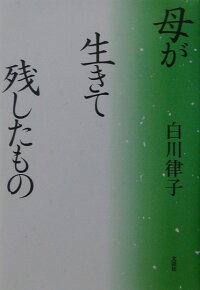 母が
生きて
残したもの
白川律子
文芸社